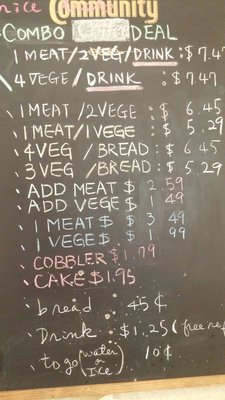 nice Community
COMBO DEAL
1 MEAT/2VEG/DRINK:$7.47
4 VEGE/DRINK :$7.47
1 MEAT/2 VEGE :$ 6.45
1 MEAT/1 VEGE :$ 5.29
4 VEG /BREAD:$ 6.45
3 VEG /BREAD:$ 5.29
ADD MEAT $ 2.59
ADD VEGE $ 1.49
1 MEAT $ 3.49
1 VEGE $ 1.99
COBBLER $1.79
CAKE $1.95
bread 45¢
Drink $1.25 (free ref
to go (water or Ice) 10¢